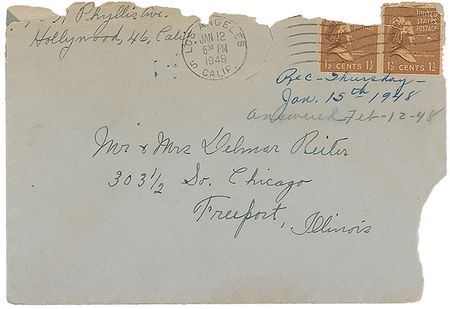 Phyllis Ave.
Hollywood, 46, Calif
LOS ANGELES
JAN 12
6 30 PM
1948
5 CALIF.
1½ CENTS 1½
UNITED
STATES
POSTAGE
1½ CENTS 1½
Rec - Thursday -
Jan. 15th 1948
answered Feb-12-48
Mr & Mrs Delmar Reiter
303 1/2 So. Chicago
Freeport, Illinois